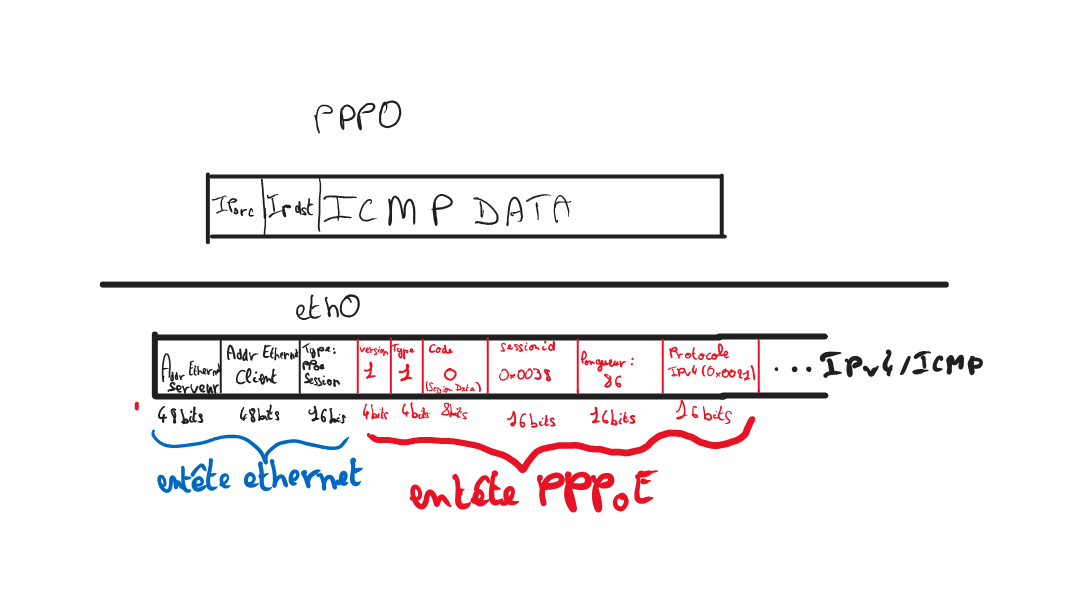 PPP0
IPsrc Ip dst ICMP DATA
eth0
Addr Ethernet Serveur
Addr Ethernet Client
Type: PPPoE Session
version 1
Type 1
Code 0 (Session Data)
sessionid 0x0038
longueur: 86
Protocole IPv4 (0x0021)
... IPv4/ICMP
48bits 48bits 16bits 4bits 4bits 8bits 16bits 16bits 16bits
entête ethernet
entête PPPoE